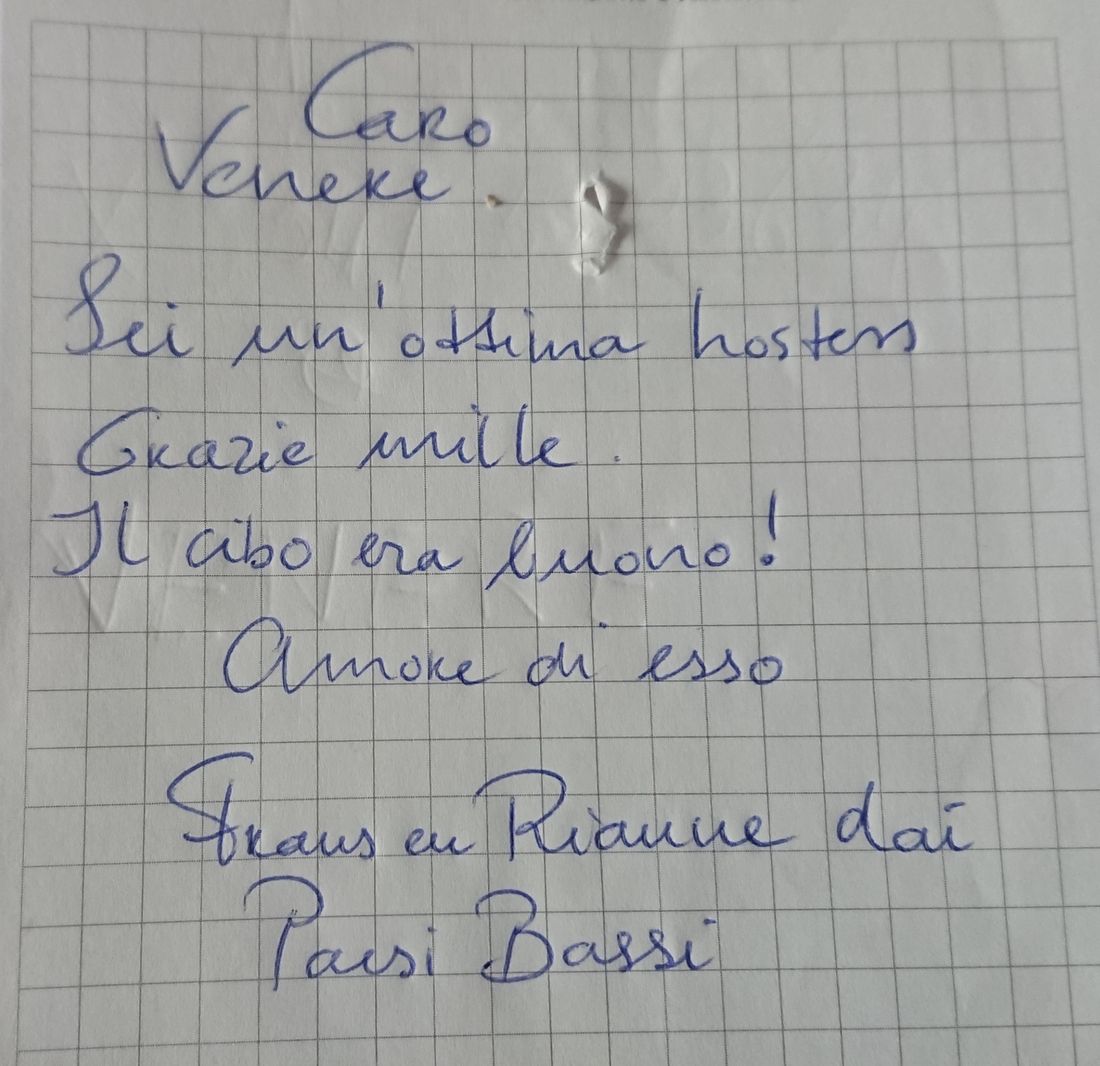 Caro
Veneke.
Sei un'ottima hostess
Grazie mille.
Il cibo era buono!
Amore di esso
Frans en Rianne dai
Paesi Bassi